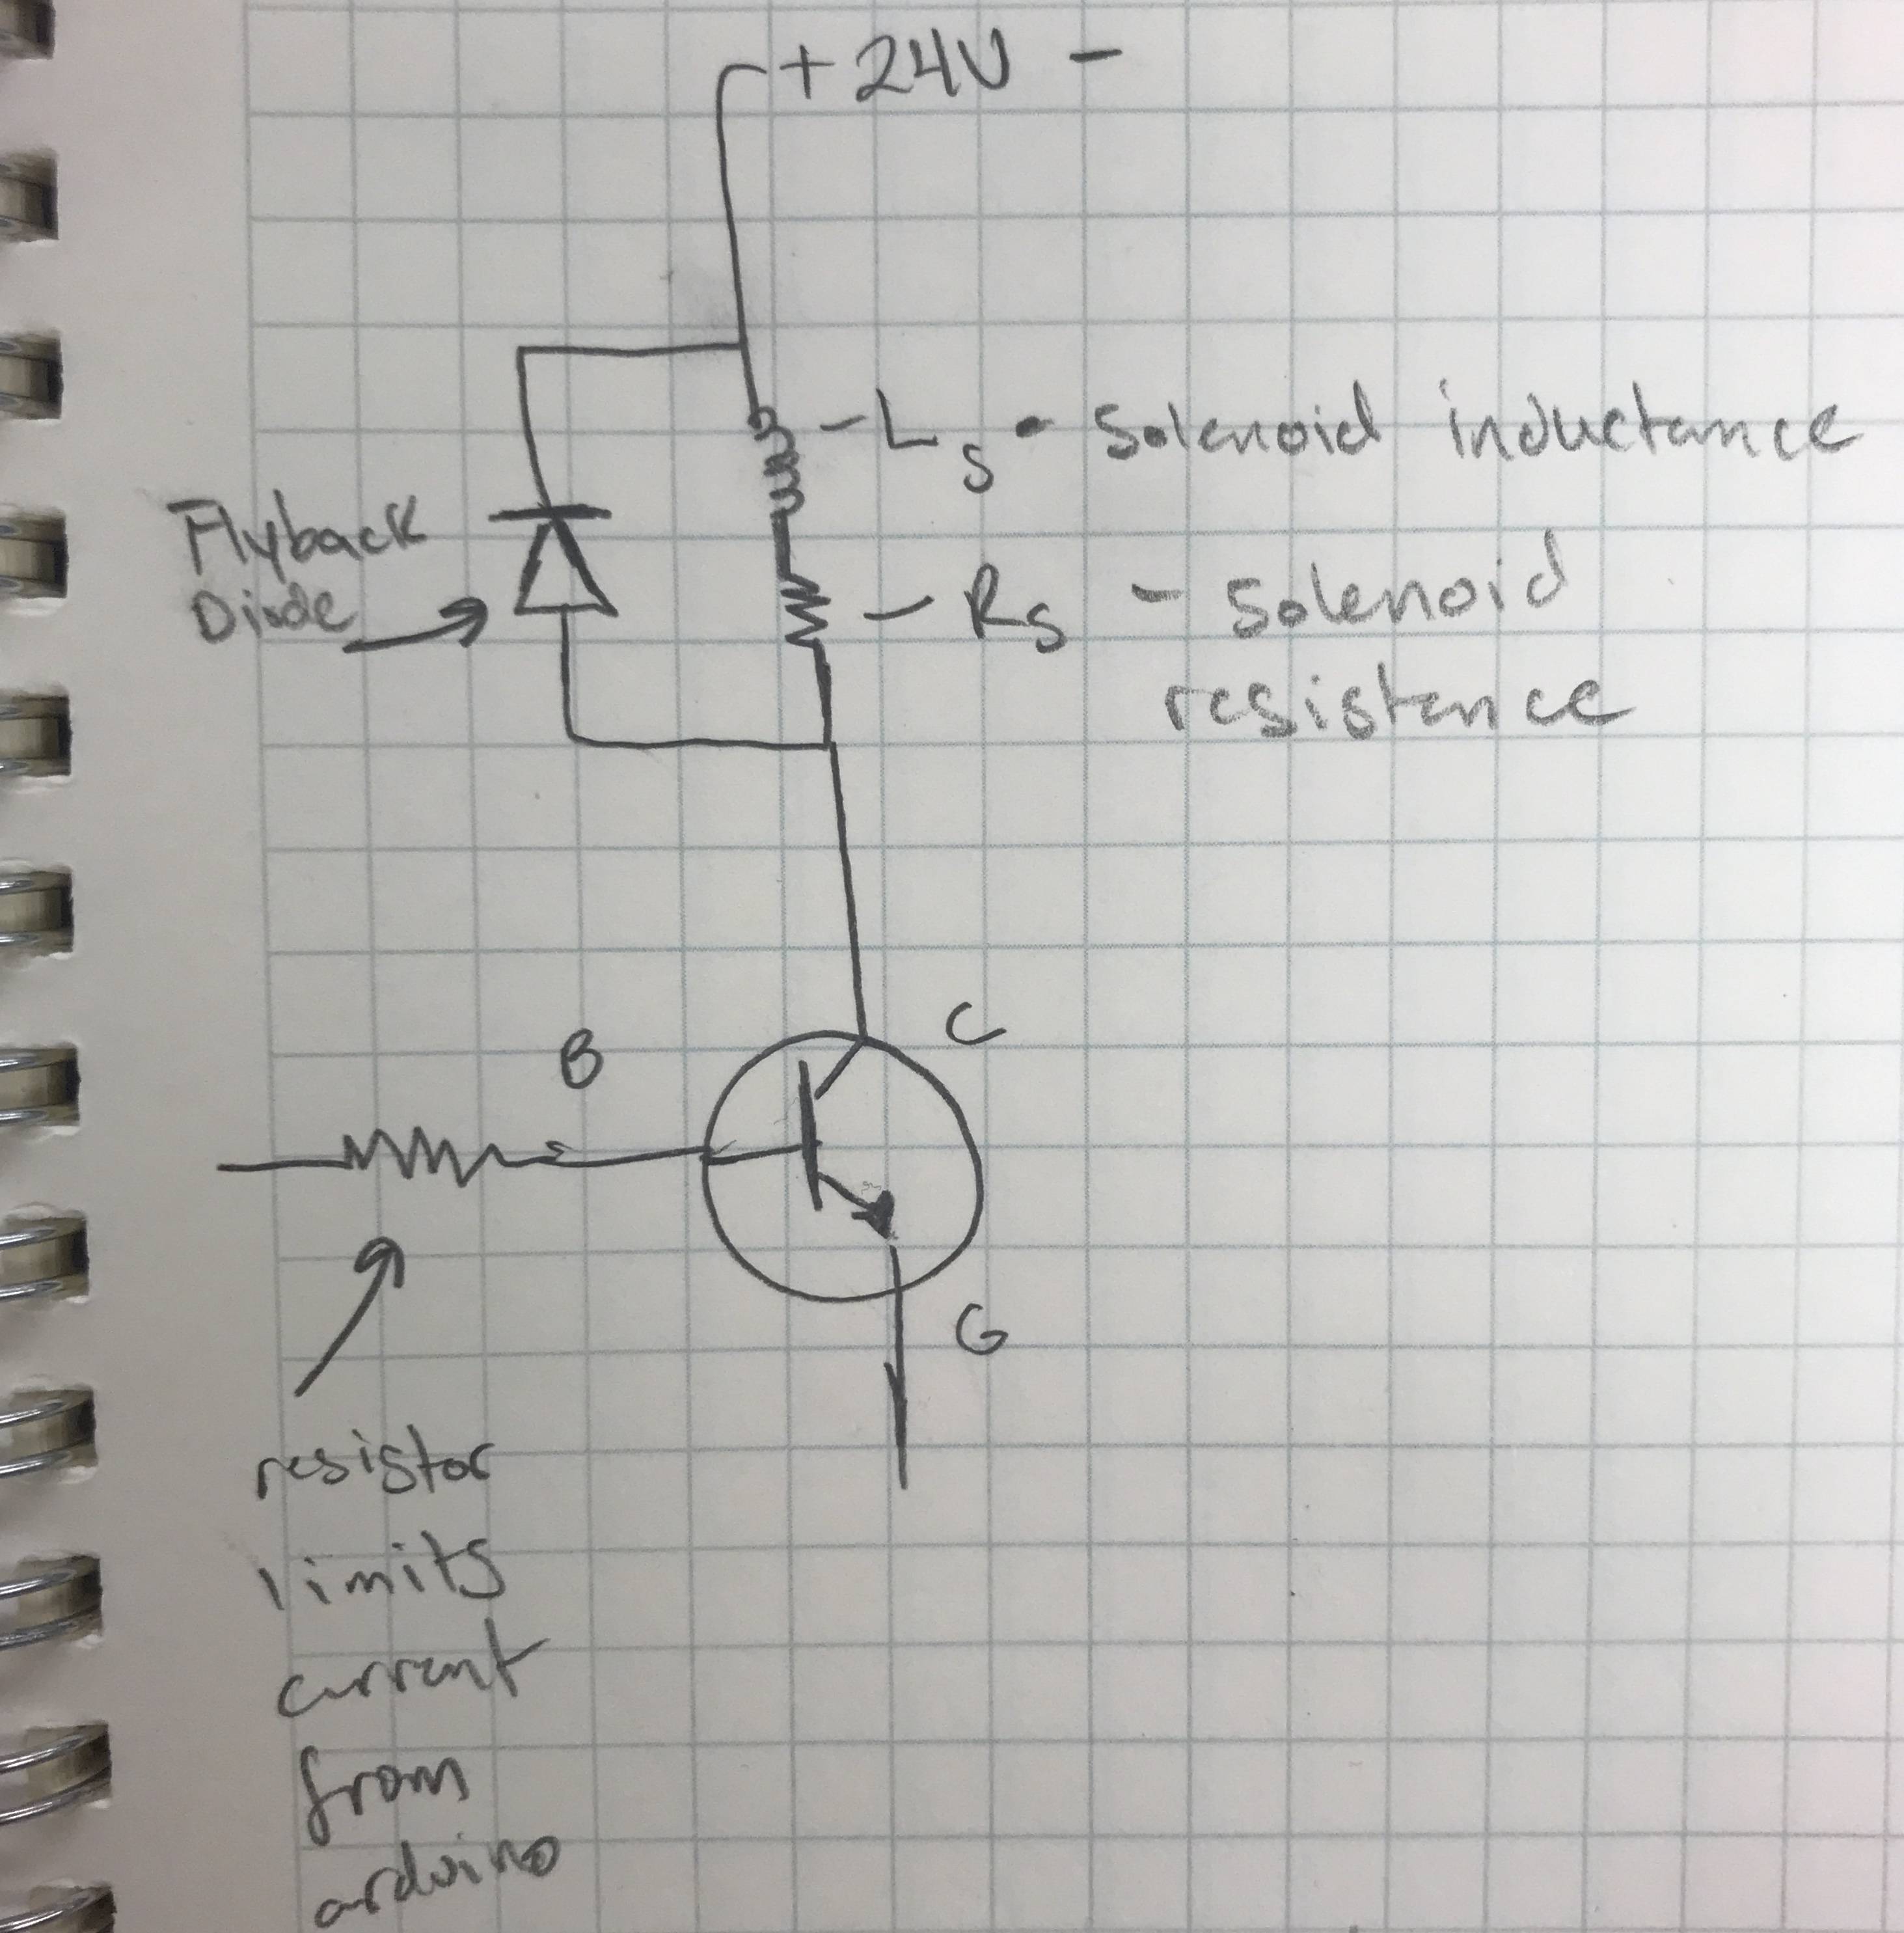 + 24V -
- Ls - Solenoid inductance
Flyback
Diode
- Rs - Solenoid
resistance
C
B
G
resistor
limits
current
from
arduino